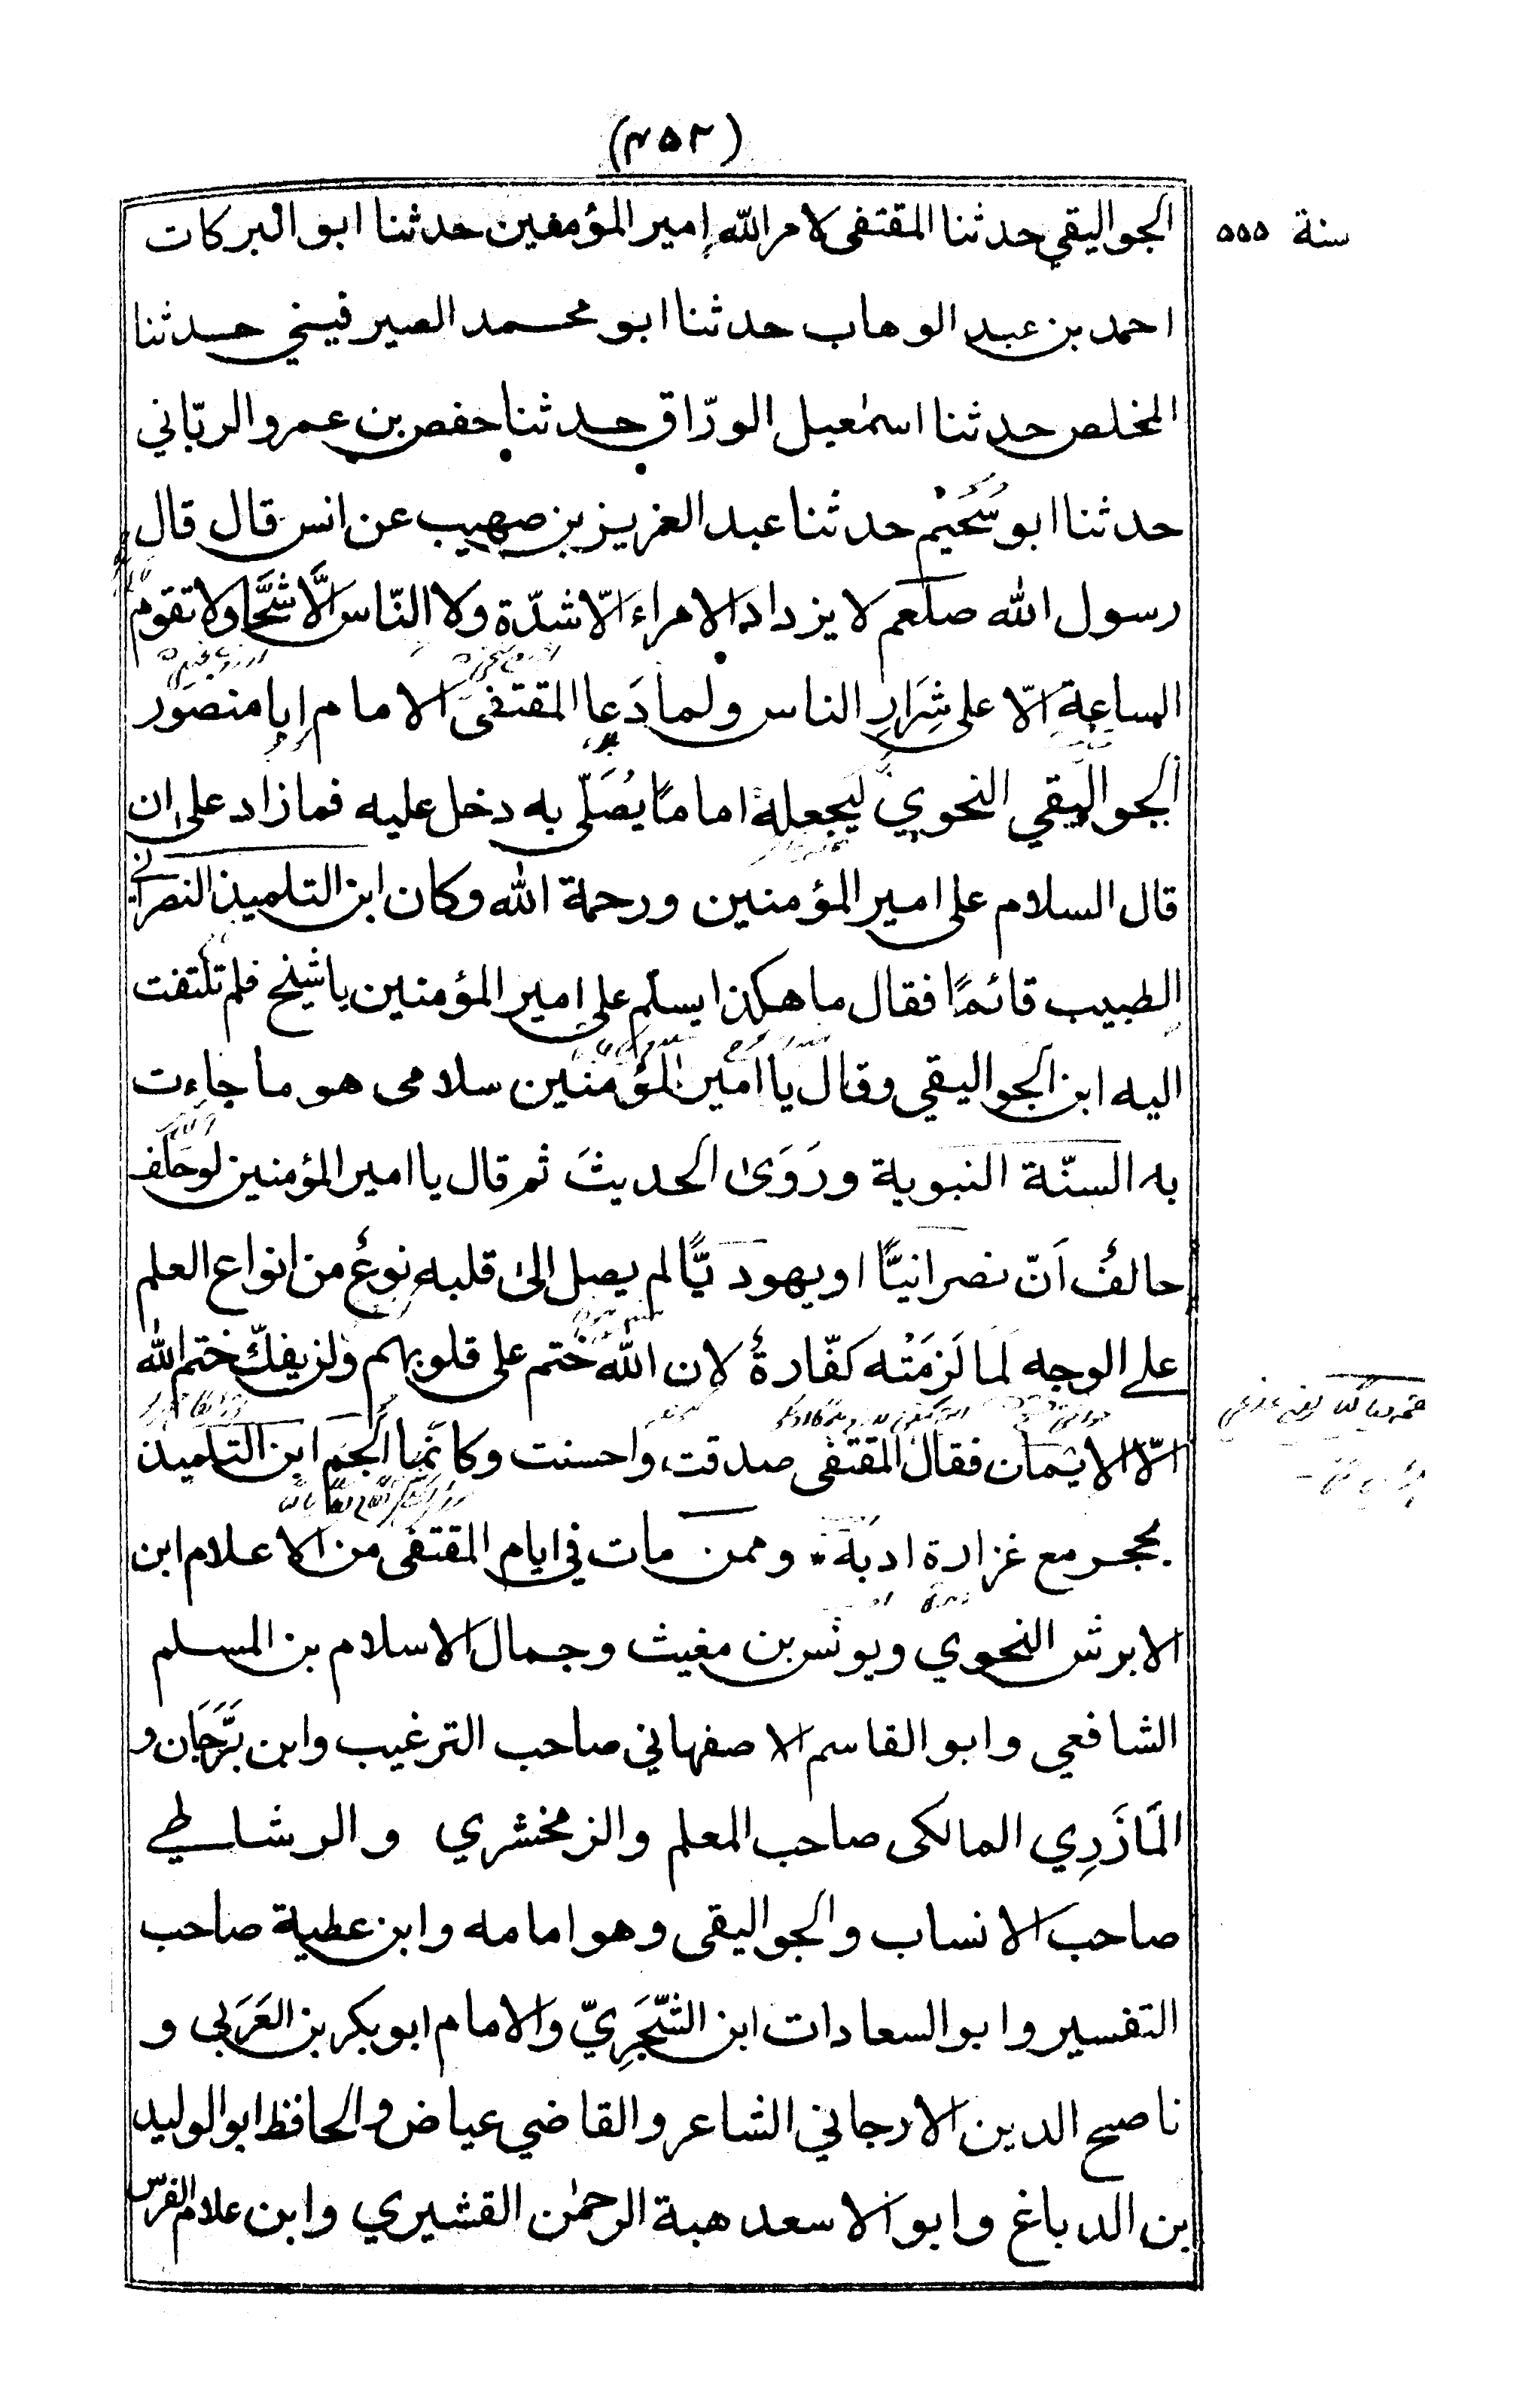 (٤٥٢)
سنة ٥٥٥
الجواليقي حدثنا المقتفى لامر الله امير المؤمنين حدثنا ابو البركات
احمد بن عبد الوهاب حدثنا ابو محمد الصيرفيني حدثنا
المخلص حدثنا اسمٰعيل الورّاق حدثنا حفص بن عمرو الربّاني
حدثنا ابو سُحَيْم حدثنا عبد العزيز بن صهيب عن انس قال قال
رسول الله صلعم لا يزداد الامراء الّا شدّة ولا النّاس الَّا شُحًّا ولا تقوم
الساعة الّا على شِرَارِ الناس ولما دَعا المقتفى الامام ابا منصور
الجواليقي النحوي ليجعله اماما يُصَلّى به دخل عليه فما زاد على ان
قال السلام على امير المؤمنين ورحمة الله وكان ابن التلميذ النصراني
الطبيب قائمًا فقال ما هكذا يسلّم على امير المؤمنين يا شيخ فلم تلتفت
اليه ابن الجواليقي وقال يا امير المؤمنين سلامى هو ما جاءت
به السنّة النبوية ورَوَىٰ الحديثَ ثم قال يا امير المؤمنين لو حلف
حالفٌ اَنّ نصرانيًّا او يهوديًّا لم يصل الىٰ قلبه نوعٌ من انواع العلم
على الوجه لَمَا لَزِمَتْه كفّارةٌ لان الله ختم على قلوبهم ولن يفكّ ختم الله
الّا الايمان فقال المقتفى صدقت واحسنت وكانّما اُلجم ابن التلميذ
بحجر مع غزارة ادبه * وممن مات في ايام المقتفى من الاعلام ابن
الابرش النحوي ويونس بن مغيث وجمال الاسلام بن المسلم
الشافعي وابو القاسم الاصفهاني صاحب الترغيب وابن بَرَّجَان و
المَازَرِي المالكى صاحب المعلم والزمخشري والرشاطي
صاحب الانساب والجواليقى وهو امامه وابن عطية صاحب
التفسير وابو السعادات ابن الشّجَرِيّ والامام ابو بكر بن العَرَبي و
ناصح الدين الارجاني الشاعر والقاضي عياض والحافظ ابو الوليد
بن الدباغ وابو الاسعد هبة الرحمٰن القشيري وابن علام الفرس